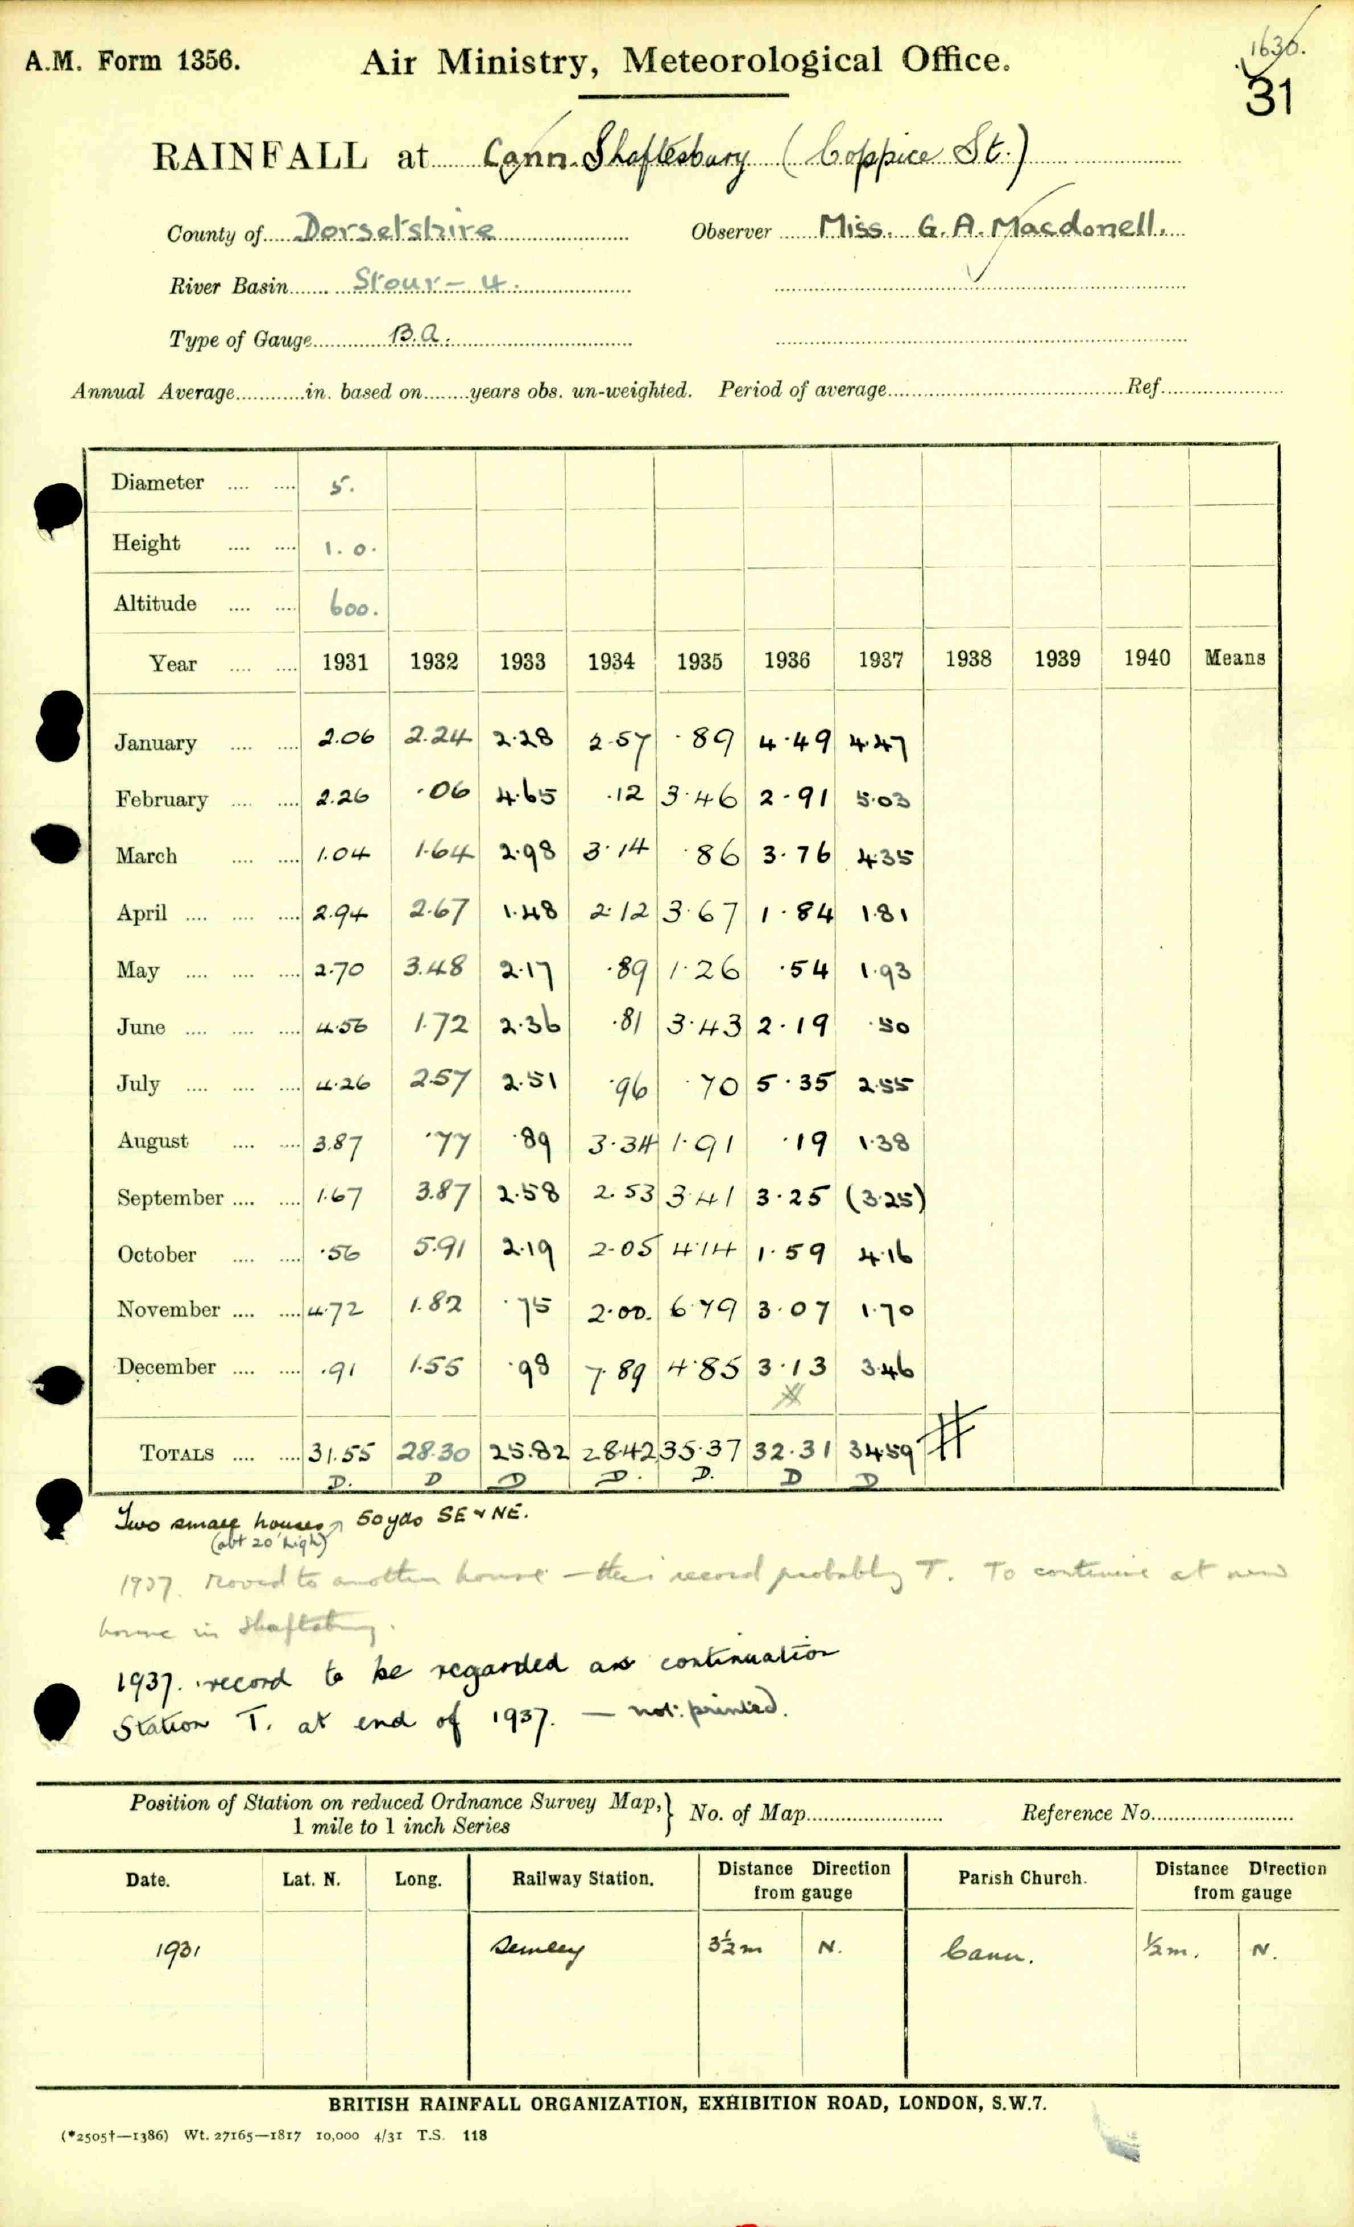 A.M. Form 1356.
Air Ministry, Meteorological Office.
1636.
31
RAINFALL at Cann. Shaftesbury (Coppice St.)
County of Dorsetshire Observer Miss. G. A. Macdonell.
River Basin Stour - 4.
Type of Gauge B.A.
Annual Average in. based on years obs. un-weighted. Period of average Ref.
Diameter 5.
Height 1. 0.
Altitude 600.
Year 1931 1932 1933 1934 1935 1936 1937 1938 1939 1940 Means
January 2.06 2.24 2.28 2.57 .89 4.49 4.47
February 2.26 .06 4.65 .12 3.46 2.91 5.03
March 1.04 1.64 2.98 3.14 .86 3.76 4.35
April 2.94 2.67 1.48 2.12 3.67 1.84 1.81
May 2.70 3.48 2.17 .89 1.26 .54 1.93
June 4.56 1.72 2.36 .81 3.43 2.19 .50
July 4.26 2.57 2.51 .96 .70 5.35 2.55
August 3.87 .77 .89 3.34 1.91 .19 1.38
September 1.67 3.87 2.58 2.53 3.41 3.25 (3.25)
October .56 5.91 2.19 2.05 4.14 1.59 4.16
November 4.72 1.82 .75 2.00. 6.79 3.07 1.70
December .91 1.55 .98 7.89 4.85 3.13 3.46
TOTALS 31.55 28.30 25.82 28.42 35.37 32.31 34.59
D. D D D. D. D D
Two small houses 50 yds SE & NE.
(abt 20' high)
1937. Moved to another house - this record probably T. To continue at new
house in Shaftesbury.
1937. record to be regarded as continuation
Station T. at end of 1937. — not printed.
Position of Station on reduced Ordnance Survey Map,} No. of Map Reference No.
1 mile to 1 inch Series
Date. Lat. N. Long. Railway Station. Distance Direction from gauge Parish Church. Distance Direction from gauge
1931 Semley 3½m N. Cann. ½m. N.
BRITISH RAINFALL ORGANIZATION, EXHIBITION ROAD, LONDON, S.W.7.
(*2505†—1386) Wt. 27165—1817 10,000 4/31 T.S. 118